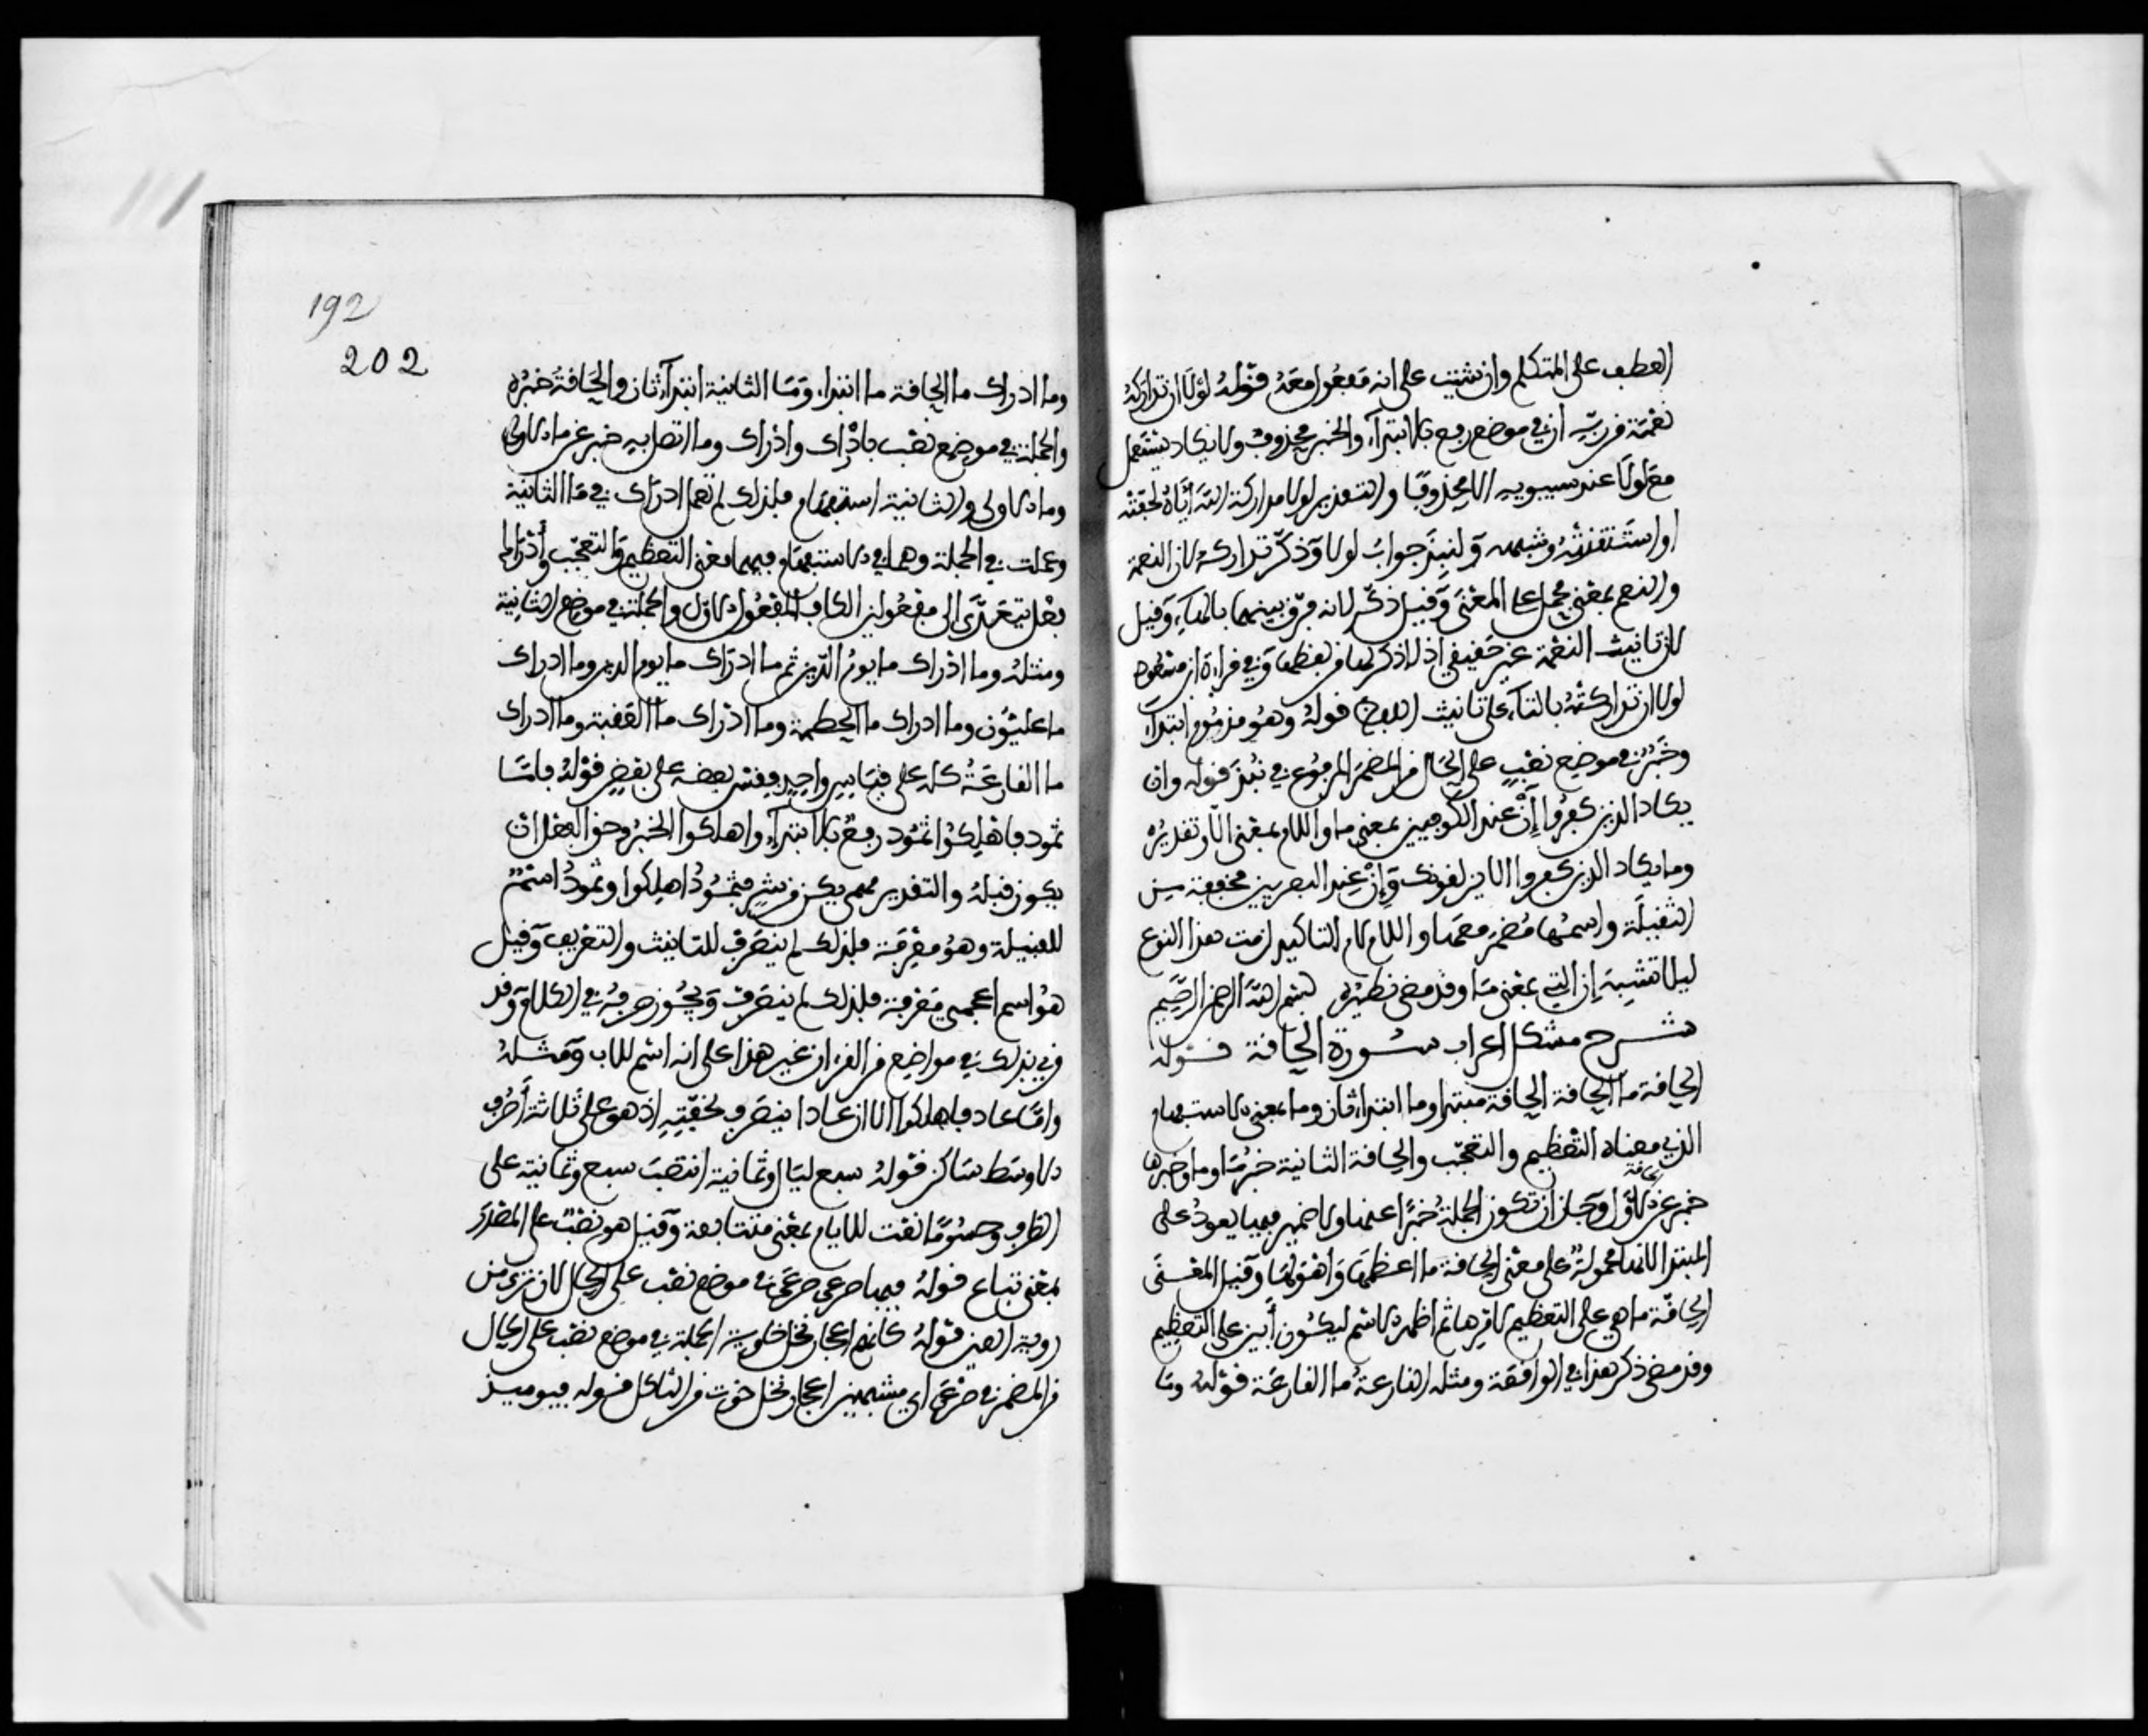 العطف على المتكلم وان شيت على انه مفعول معه قوله لولا ان تداركه
نعمة من ربه ان في موضع رفع بالابتداء والخبر محذوف ولا يكاد يستعمل
مع لولا عند سيبويه الا محذوفا والتقدير لولا مداركة الله اياه لحقته
او استنقذته وشبهه ولنبذ جواب لولا وذكر تداركه لان النعمة
والنعم بمعنى محمل على المعنى وقيل ذكر لانه فرق بينهما بالهاء وقيل
لان تانيث النعمة غير حقيقي اذ لا ذكر لها من لفظها وفي قراءة ابن مسعود
لولا ان تداركته بالتاء على تانيث اللفظ قوله وهو مذموم ابتداء
وخبر في موضع نصب على الحال من المضمر المرفوع في نبذ قوله وان
يكاد الذين كفروا إن عند الكوفيين بمعنى ما واللام بمعنى الا وتقديره
وما يكاد الذين كفروا الا يزلقونك وإن عند البصريين مخففة من
الثقيلة واسمها مضمر معها واللام لام التاكيد لزمت هذا النوع
ليلا تشبه إن التي بمعنى ما وقد مضى نظيره بسم الله الرحمن الرحيم
شرح مشكل اعراب سورة الحاقة قوله
الحاقة ما الحاقة الحاقة مبتدا وما ابتداء ثان وما بمعنى الاستفهام
الذي معناه التعظيم والتعجب والحاقة الثانية خبر ما وما وخبرها
خبر عن الاول وجاز ان تكون الجملة خبرا عنها ولا ضمير فيها يعود على
المبتدا لانها محمولة على معنى الحاقة ما اعظمها واهولها وقيل المعنى
الحاقة ما هي على التعظيم لامرها ثم اظهر الاسم ليكون أبين على التعظيم
وقد مضى ذكر هذا في الواقعة ومثله القارعة ما القارعة قوله وما
192
202
وما ادراك ما الحاقة ما ابتداء وما الثانية ابتداء ثان والحاقة خبره
والجملة في موضع نصب بادراك وادراك وما اتصل به خبر عن ما الاولى
وما الاولى والثانية استفهام فلذلك لم تعمل ادراك في ما الثانية
وعملت في الجملة وهما في الاستفهام فيهما معنى التعظيم والتعجب وأدرى
فعل يتعدى الى مفعولين الكاف المفعول الاول والجملة في موضع الثانية
ومثله وما ادراك ما يوم الدين ثم ما ادراك ما يوم الدين وما ادراك
ما عليون وما ادراك ما الحطمة وما ادراك ما العقبة وما ادراك
ما القارعة كله على قياس واحد فقس بعضه على بعض قوله فاما
ثمود فاهلكوا ثمود رفع بالابتداء واهلكوا الخبر وحق الفعل ان
يكون قبله والتقدير مهما يكن من شيء فثمود اهلكوا وثمود اسم
للقبيلة وهو معرفة فلذلك لم ينصرف للتانيث والتعريف وقيل
هو اسم اعجمي معرفة فلذلك لم ينصرف ويجوز صرفه في الكلام وقد
قرئ بذلك في مواضع من القرءان غير هذا على انه اسم للاب ومثله
واما عاد فاهلكوا الا ان عادا ينصرف لخفته اذ هو على ثلاثة أحرف
الاوسط ساكن قوله سبع ليال وثمانية انتصب سبع وثمانية على
الظرف وحسوما نعت للايام بمعنى متتابعة وقيل هو نصب على المصدر
بمعنى تباع قوله فيها صرعى صرعى في موضع نصب على الحال لان ترى من
روية العين قوله كانهم اعجاز نخل خاوية الجملة في موضع نصب على الحال
من المضمر في صرعى اي مشبهين اعجاز نخل خوت من التاكل قوله فيوميذ